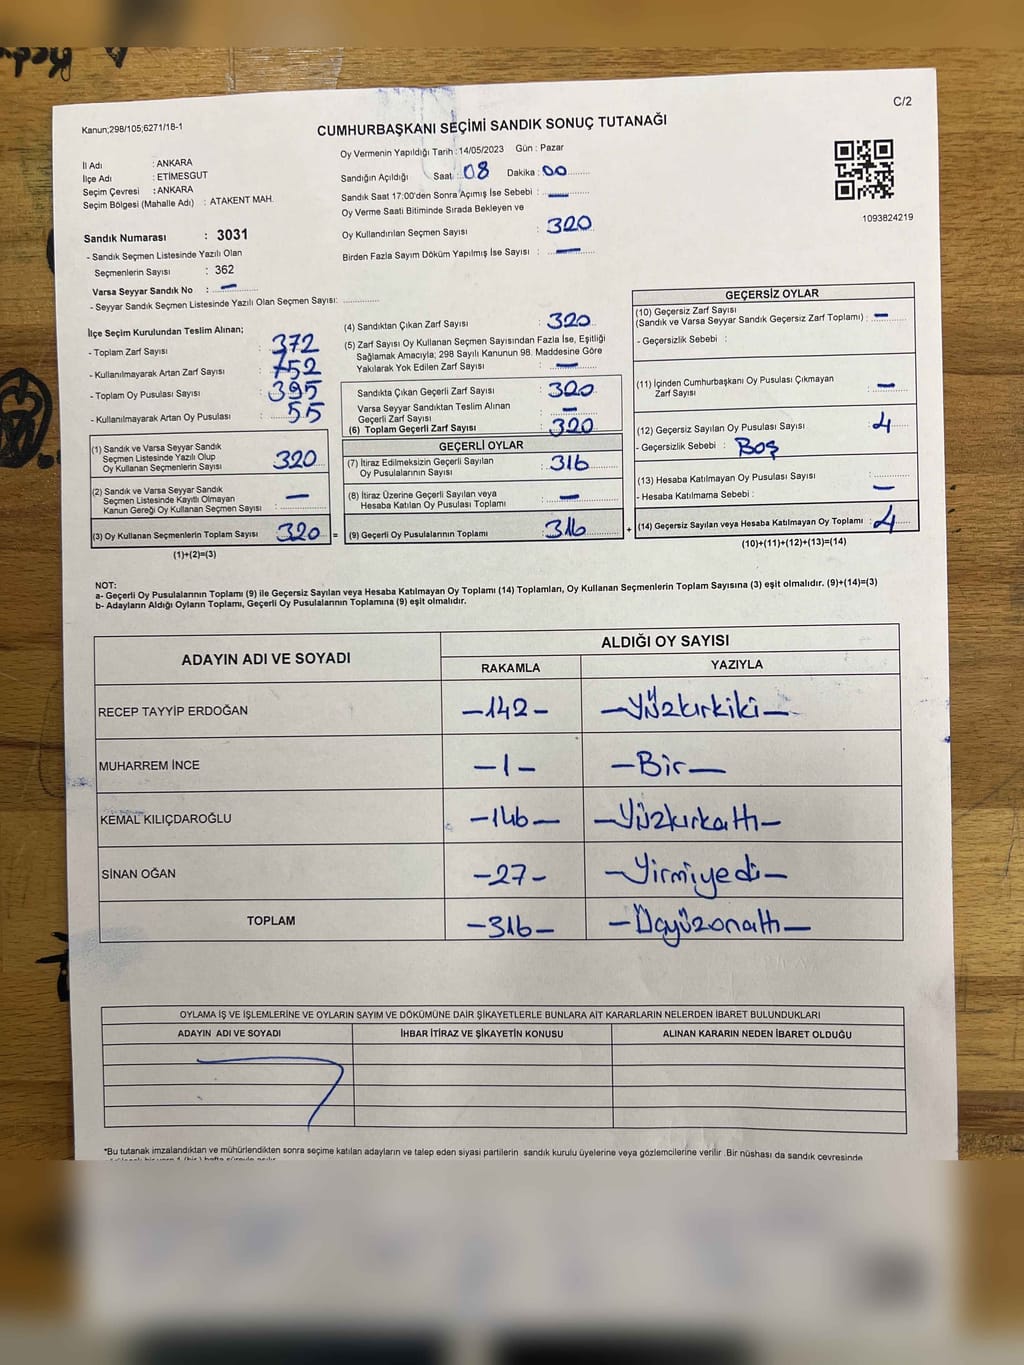 Kanun;298/105;6271/18-1
C/2
CUMHURBAŞKANI SEÇİMİ SANDIK SONUÇ TUTANAĞI
İl Adı : ANKARA
İlçe Adı : ETİMESGUT
Seçim Çevresi : ANKARA
Seçim Bölgesi (Mahalle Adı) : ATAKENT MAH.
Oy Vermenin Yapıldığı Tarih : 14/05/2023 Gün : Pazar
Sandığın Açıldığı Saat : 08 Dakika : 00
Sandık Saat 17:00'den Sonra Açımış İse Sebebi : —
Oy Verme Saati Bitiminde Sırada Bekleyen ve
Oy Kullandırılan Seçmen Sayısı : 320
Birden Fazla Sayım Döküm Yapılmış İse Sayısı : —
1093824219
Sandık Numarası : 3031
- Sandık Seçmen Listesinde Yazılı Olan
Seçmenlerin Sayısı : 362
Varsa Seyyar Sandık No : —
- Seyyar Sandık Seçmen Listesinde Yazılı Olan Seçmen Sayısı:
İlçe Seçim Kurulundan Teslim Alınan;
- Toplam Zarf Sayısı : 372
- Kullanılmayarak Artan Zarf Sayısı : 752
- Toplam Oy Pusulası Sayısı : 395
- Kullanılmayarak Artan Oy Pusulası : 55
(1) Sandık ve Varsa Seyyar Sandık
Seçmen Listesinde Yazılı Olup
Oy Kullanan Seçmenlerin Sayısı 320
(2) Sandık ve Varsa Seyyar Sandık
Seçmen Listesinde Kayıtlı Olmayan
Kanun Gereği Oy Kullanan Seçmen Sayısı : —
(3) Oy Kullanan Seçmenlerin Toplam Sayısı 320 =
(1)+(2)=(3)
(4) Sandıktan Çıkan Zarf Sayısı : 320
(5) Zarf Sayısı Oy Kullanan Seçmen Sayısından Fazla İse, Eşitliği
Sağlamak Amacıyla; 298 Sayılı Kanunun 98. Maddesine Göre
Yakılarak Yok Edilen Zarf Sayısı : —
Sandıkta Çıkan Geçerli Zarf Sayısı : 320
Varsa Seyyar Sandıktan Teslim Alınan
Geçerli Zarf Sayısı : —
(6) Toplam Geçerli Zarf Sayısı : 320
GEÇERLİ OYLAR
(7) İtiraz Edilmeksizin Geçerli Sayılan
Oy Pusulalarının Sayısı : 316
(8) İtiraz Üzerine Geçerli Sayılan veya
Hesaba Katılan Oy Pusulası Toplamı : —
(9) Geçerli Oy Pusulalarının Toplamı : 316 +
GEÇERSİZ OYLAR
(10) Geçersiz Zarf Sayısı
(Sandık ve Varsa Seyyar Sandık Geçersiz Zarf Toplamı) : —
- Geçersizlik Sebebi :
(11) İçinden Cumhurbaşkanı Oy Pusulası Çıkmayan
Zarf Sayısı : —
(12) Geçersiz Sayılan Oy Pusulası Sayısı : 4
- Geçersizlik Sebebi : Boş
(13) Hesaba Katılmayan Oy Pusulası Sayısı : —
- Hesaba Katılmama Sebebi :
(14) Geçersiz Sayılan veya Hesaba Katılmayan Oy Toplamı : 4
(10)+(11)+(12)+(13)=(14)
NOT:
a- Geçerli Oy Pusulalarının Toplamı (9) ile Geçersiz Sayılan veya Hesaba Katılmayan Oy Toplamı (14) Toplamları, Oy Kullanan Seçmenlerin Toplam Sayısına (3) eşit olmalıdır. (9)+(14)=(3)
b- Adayların Aldığı Oyların Toplamı, Geçerli Oy Pusulalarının Toplamına (9) eşit olmalıdır.
ADAYIN ADI VE SOYADI
ALDIĞI OY SAYISI
RAKAMLA YAZIYLA
RECEP TAYYİP ERDOĞAN -142- -Yüzkırkiki-
MUHARREM İNCE -1- -Bir-
KEMAL KILIÇDAROĞLU -146- -Yüzkırkaltı-
SİNAN OĞAN -27- -Yirmiyedi-
TOPLAM -316- -Üçyüzonaltı-
OYLAMA İŞ VE İŞLEMLERİNE VE OYLARIN SAYIM VE DÖKÜMÜNE DAİR ŞİKAYETLERLE BUNLARA AİT KARARLARIN NELERDEN İBARET BULUNDUKLARI
ADAYIN ADI VE SOYADI İHBAR İTİRAZ VE ŞİKAYETİN KONUSU ALINAN KARARIN NEDEN İBARET OLDUĞU
*Bu tutanak imzalandıktan ve mühürlendikten sonra seçime katılan adayların ve talep eden siyasi partilerin sandık kurulu üyelerine veya gözlemcilerine verilir .Bir nüshası da sandık çevresinde